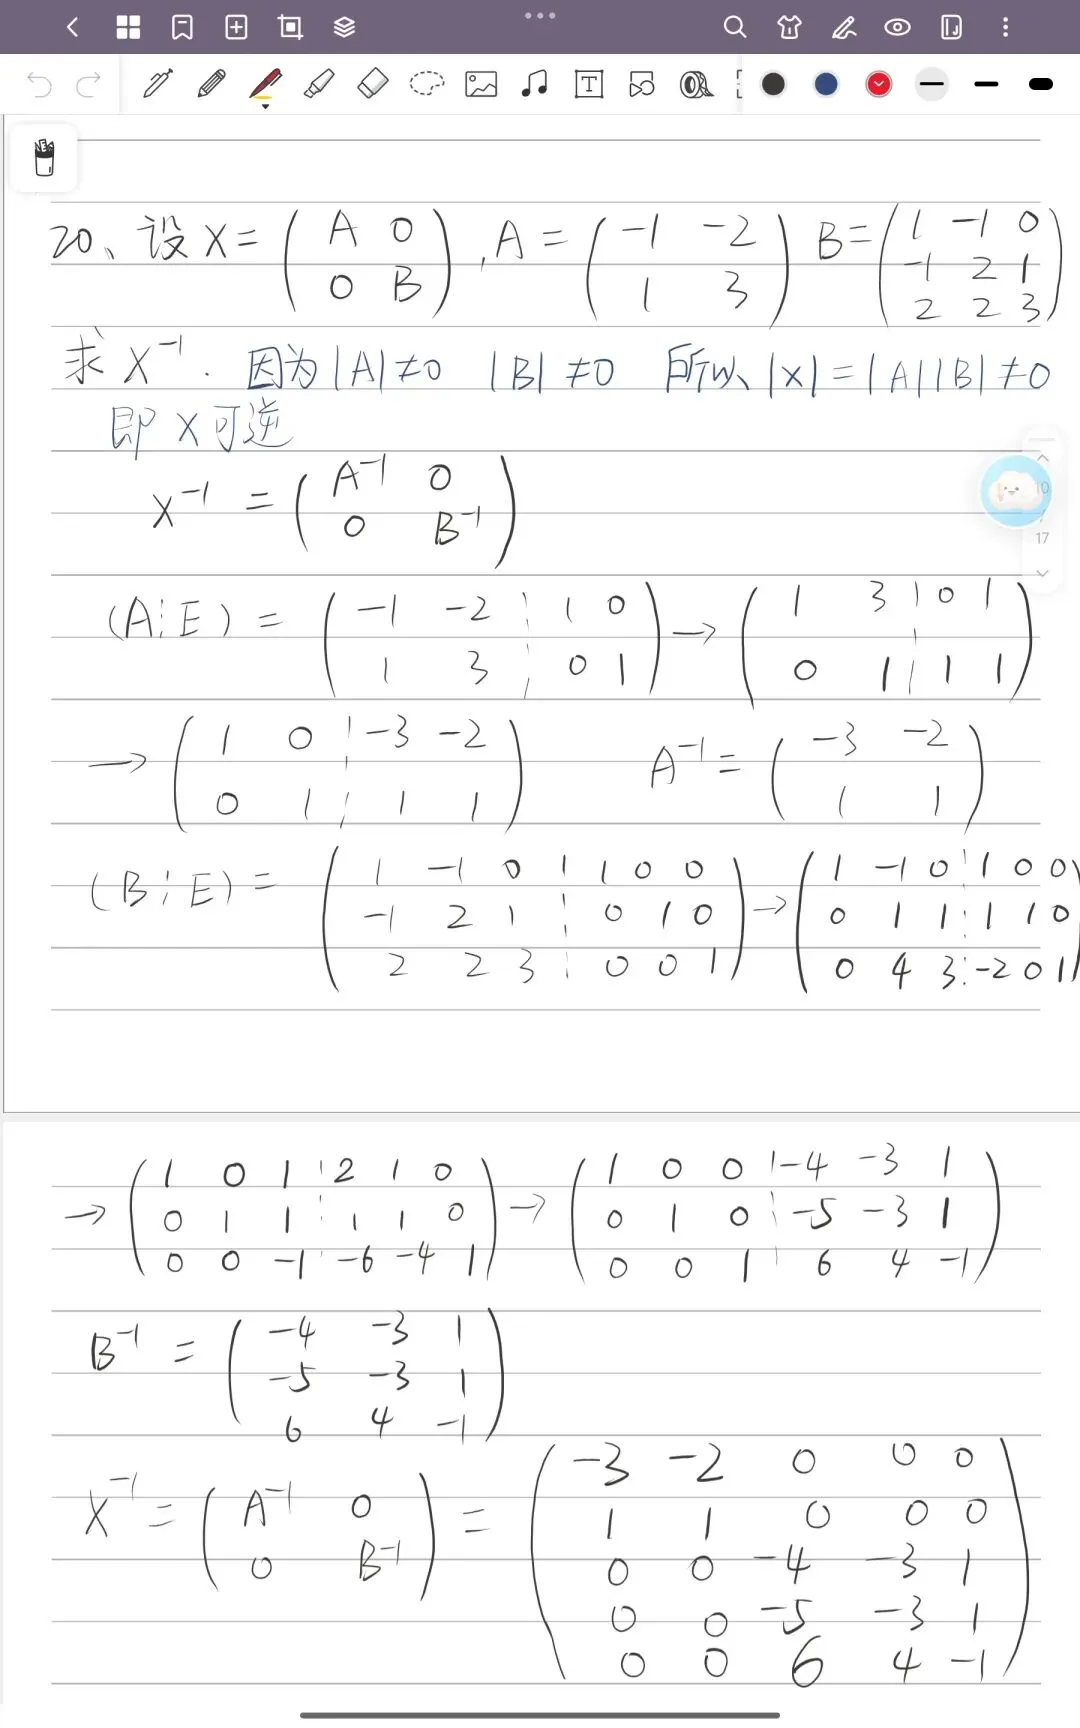 20、设 X = ( A 0 ; 0 B ), A = ( -1 -2 ; 1 3 ) B = ( 1 -1 0 ; -1 2 1 ; 2 2 3 )
求 X⁻¹ . 因为 |A| ≠ 0 |B| ≠ 0 所以 |X| = |A||B| ≠ 0
即 X 可逆
X⁻¹ = ( A⁻¹ 0 ; 0 B⁻¹ )
10
17
(A¦E) = ( -1 -2 ¦ 1 0 ; 1 3 ¦ 0 1 ) → ( 1 3 ¦ 0 1 ; 0 1 ¦ 1 1 )
→ ( 1 0 ¦ -3 -2 ; 0 1 ¦ 1 1 ) A⁻¹ = ( -3 -2 ; 1 1 )
(B¦E) = ( 1 -1 0 ¦ 1 0 0 ; -1 2 1 ¦ 0 1 0 ; 2 2 3 ¦ 0 0 1 ) → ( 1 -1 0 ¦ 1 0 0 ; 0 1 1 ¦ 1 1 0 ; 0 4 3 ¦ -2 0 1 )
→ ( 1 0 1 ¦ 2 1 0 ; 0 1 1 ¦ 1 1 0 ; 0 0 -1 ¦ -6 -4 1 ) → ( 1 0 0 ¦ -4 -3 1 ; 0 1 0 ¦ -5 -3 1 ; 0 0 1 ¦ 6 4 -1 )
B⁻¹ = ( -4 -3 1 ; -5 -3 1 ; 6 4 -1 )
X⁻¹ = ( A⁻¹ 0 ; 0 B⁻¹ ) = ( -3 -2 0 0 0 ; 1 1 0 0 0 ; 0 0 -4 -3 1 ; 0 0 -5 -3 1 ; 0 0 6 4 -1 )